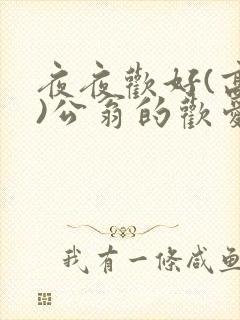 夜夜歡好(高
)公翁的歡愛
我有一條咸魚